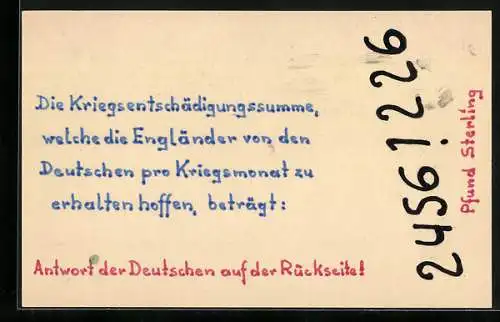 Die Kriegsentschädigungssumme,
welche die Engländer von den
Deutschen pro Kriegsmonat zu
erhalten hoffen, beträgt:
2456i226
Pfund Sterling
Antwort der Deutschen auf der Rückseite!